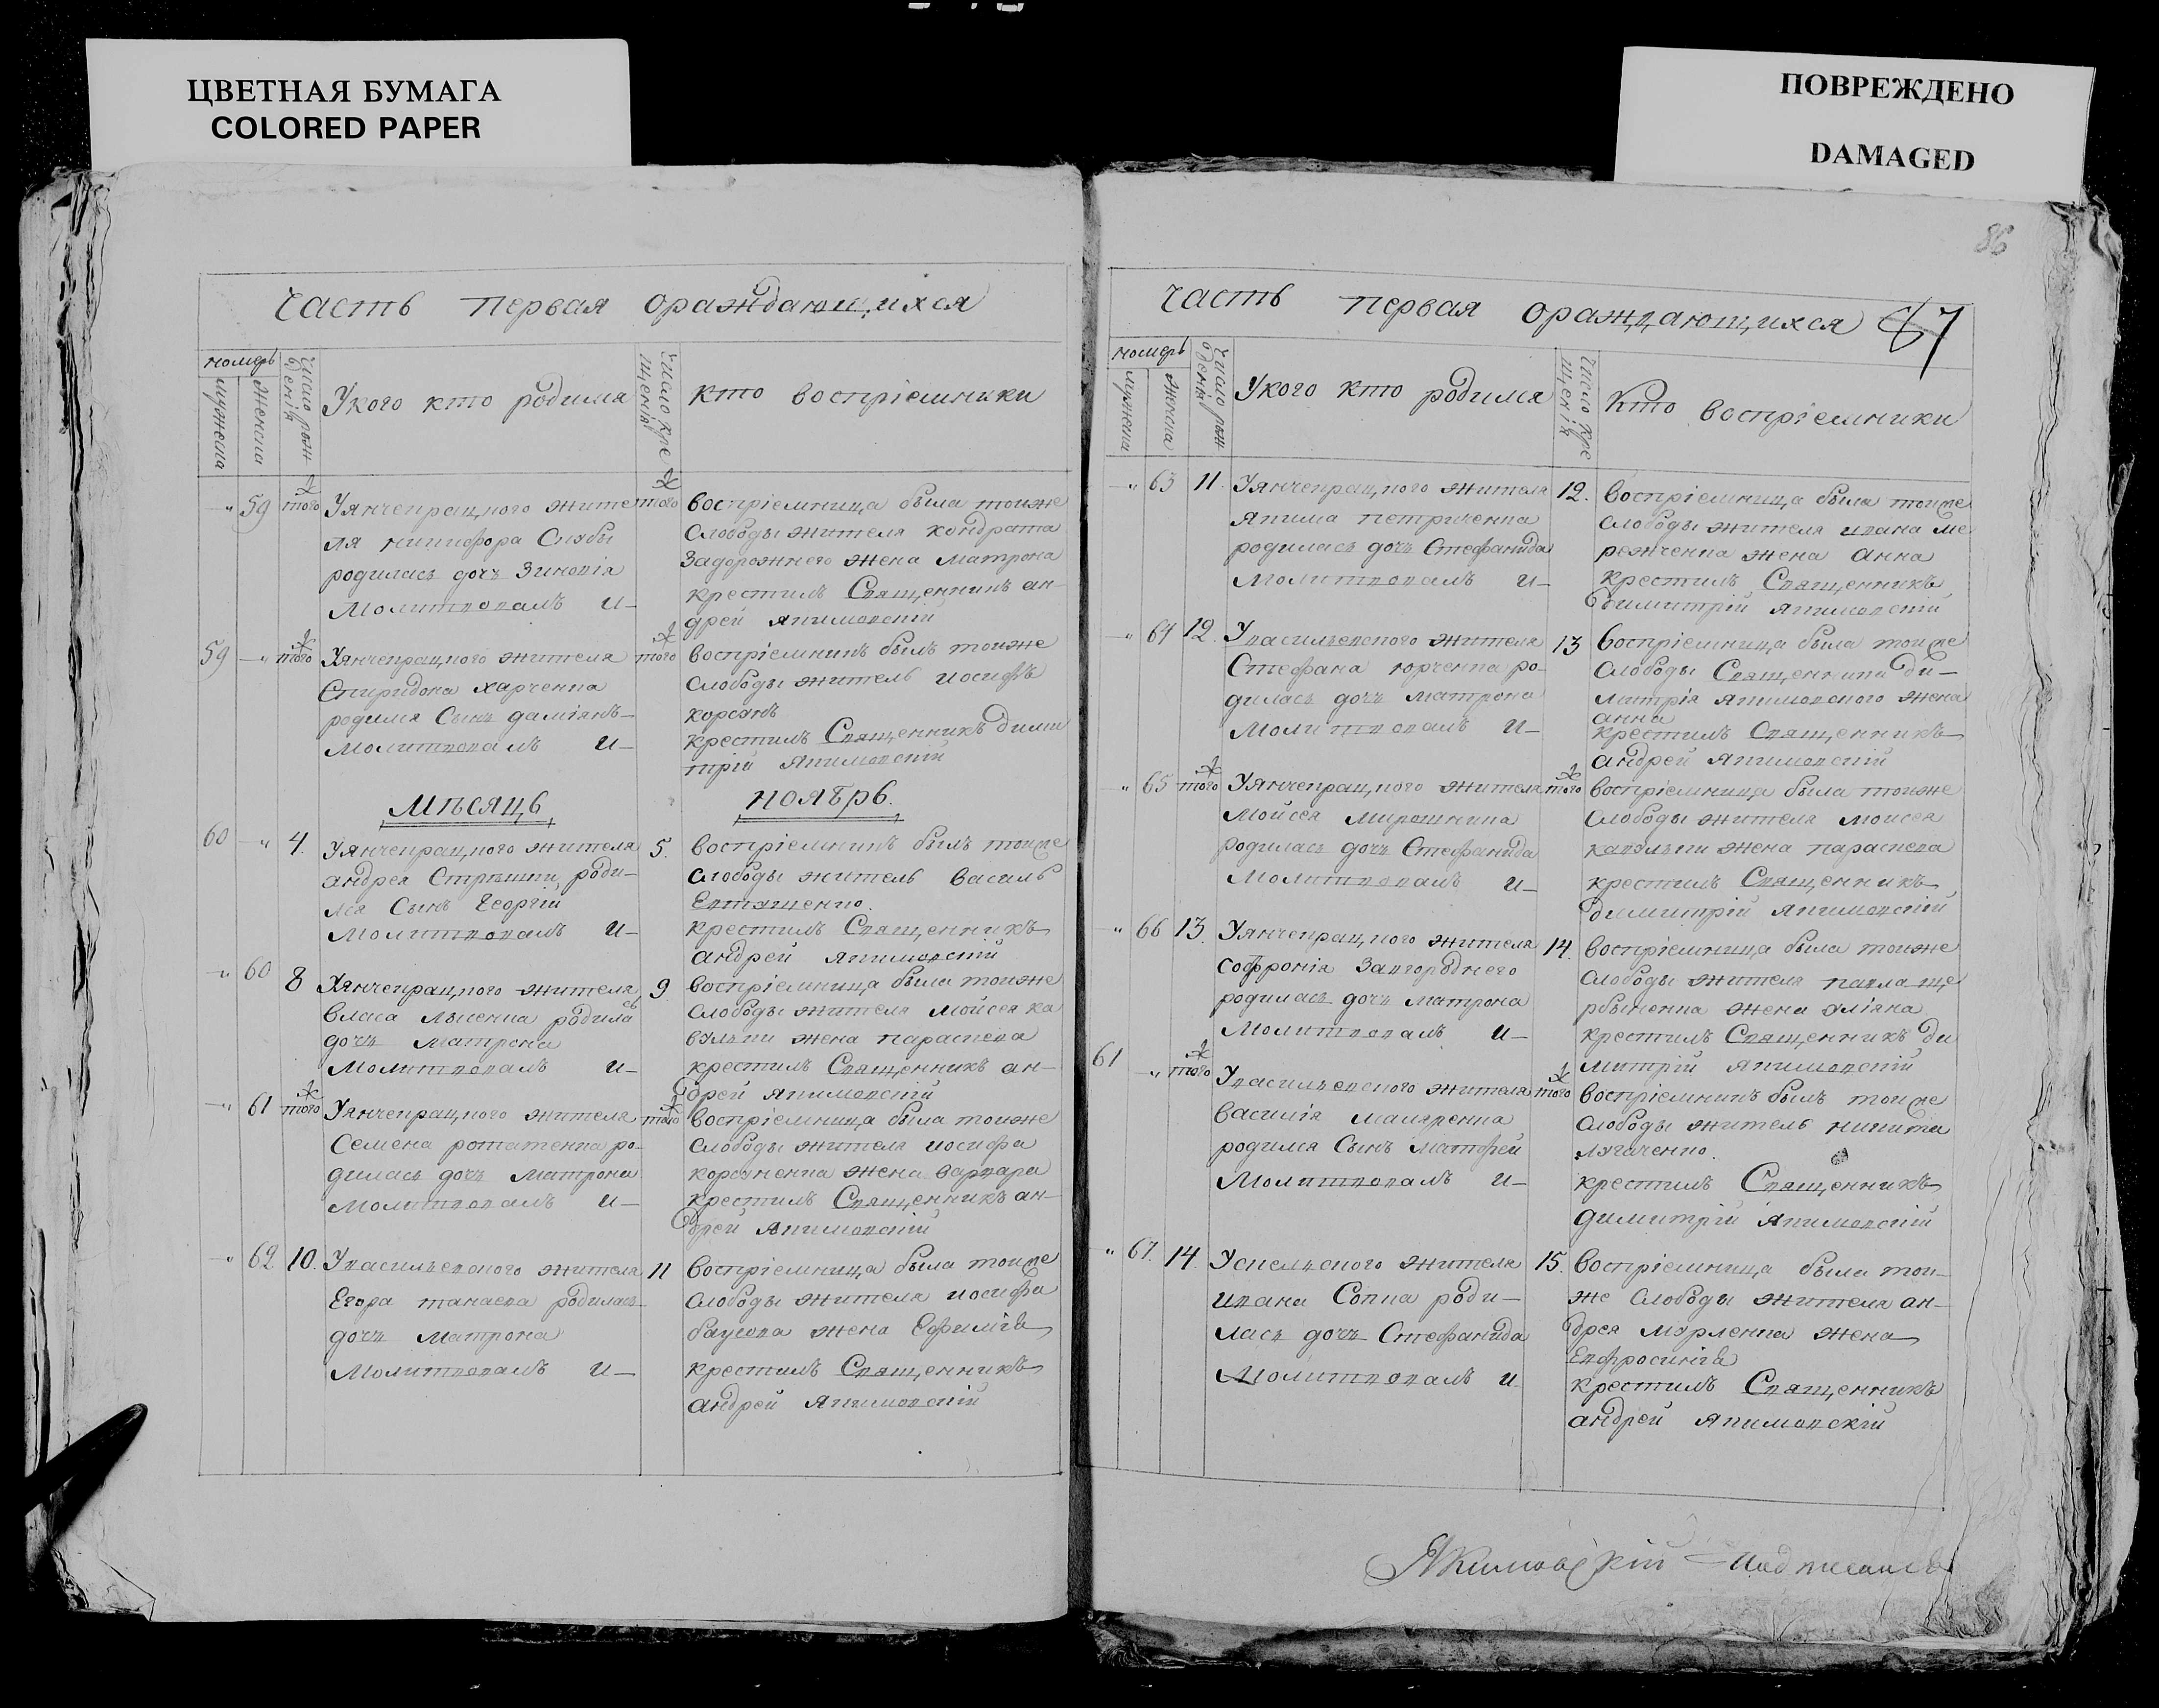 ЦВЕТНАЯ БУМАГА
COLORED PAPER
ПОВРЕЖДЕНО
DAMAGED
86
Часть первая ораждающихся
номеръ
мужеска
женска
Число рож
денія
Укого кто родился
Число кре
щенія
кто воспріемники
59 того ж Уянчекрацкого жите
ля никифора Скибы
родилась дочь Зиновія
Молитвовалъ и
того ж воспріемница была тоиже
Слободы жителя кондрата
Задорожнего жена Матрона
крестилъ Священникъ ан-
дрей якимовскій
59 того ж Уянчекрацкого жителя
Спиридона харченка
родился Сынъ даміянъ
Молитвовалъ и
того ж воспріемникъ былъ тоиже
Слободы житель иосифъ
корсянъ
крестилъ Священникъ дими
трій якимовскій
Мѣсяцъ ноябрь.
60 4. Уянчекрацкого жителя
андрея роди-
лся Сынъ Георгій
Молитвовалъ и
5. воспріемникъ былъ тоиже
Слободы житель василь
Евтушенко.
крестилъ Священникъ
андрей якимовскій
60 8 Уянчекрацкого жителя
власа лысенка родилась
дочь Матрона
Молитвовалъ и
9 воспріемница была тоиже
Слободы жителя мойсея ка
вульки жена параскева
крестилъ Священникъ ан-
дрей якимовскій
61 того ж Уянчекрацкого жителя
Семена ротатенка ро-
дилась дочь Матрона
Молитвовалъ и
того ж воспріемница была тоиже
Слободы жителя иосифа
корсуненка жена варвара
крестилъ Священникъ ан-
дрей якимовскій
62 10. Увасильевского жителя
Егора танаева родилась
дочь Матрона
Молитвовалъ и
11 воспріемница была тоиже
Слободы жителя иосифа
баусова жена Ефимія
крестилъ Священникъ
андрей якимовскій
Часть первая ораждающихся 87
номеръ
мужеска
женска
Число рож
денія
Укого кто родился
Число кре
щенія
Кто воспріемники
63 11. Уянчекрацкого жителя
якима петриченка
родилась дочь Стефанида
Молитвовалъ и
12. воспріемница была тоиже
Слободы жителя ивана ме
режченка жена анна
крестилъ Священникъ
димитрій якимовскій
64 12. Увасильевского жителя
Стефана юрченка ро-
дилась дочь матрона
Молитвовалъ и
13 воспріемница была тоиже
Слободы Священника ди-
митрія якимовского жена
анна
крестилъ Священникъ
андрей якимовскій
65 того ж Уянчекрацкого жителя
Мойсея Мирошника
родилась дочь Стефанида
Молитвовалъ и
того ж воспріемница была тоиже
Слободы жителя моисея
кавульки жена параскева
крестилъ Священникъ
димитрій якимовскій
66 13. Уянчекрацкого жителя
софронія Завгороднего
родилась дочь матрона
Молитвовалъ и
14. воспріемница была тоиже
Слободы жителя павла ще
рбыненка жена уліяна
крестилъ Священникъ ди
митрій якимовскій
61 того ж Увасильевского жителя
василія маляренка
родился Сынъ матфей
Молитвовалъ и
того ж воспріемникъ былъ тоиже
Слободы житель никита
лугаченко.
крестилъ Священникъ
димитрій якимовскій
67. 14. Успевского жителя
ивана Сопка роди-
лась дочь Стефанида
Молитвовалъ и
15. воспріемница была тои-
же Слободы жителя ан-
дрея мурленка жена
Евфросинія
крестилъ Священникъ
андрей якимовскій
Якимовскій